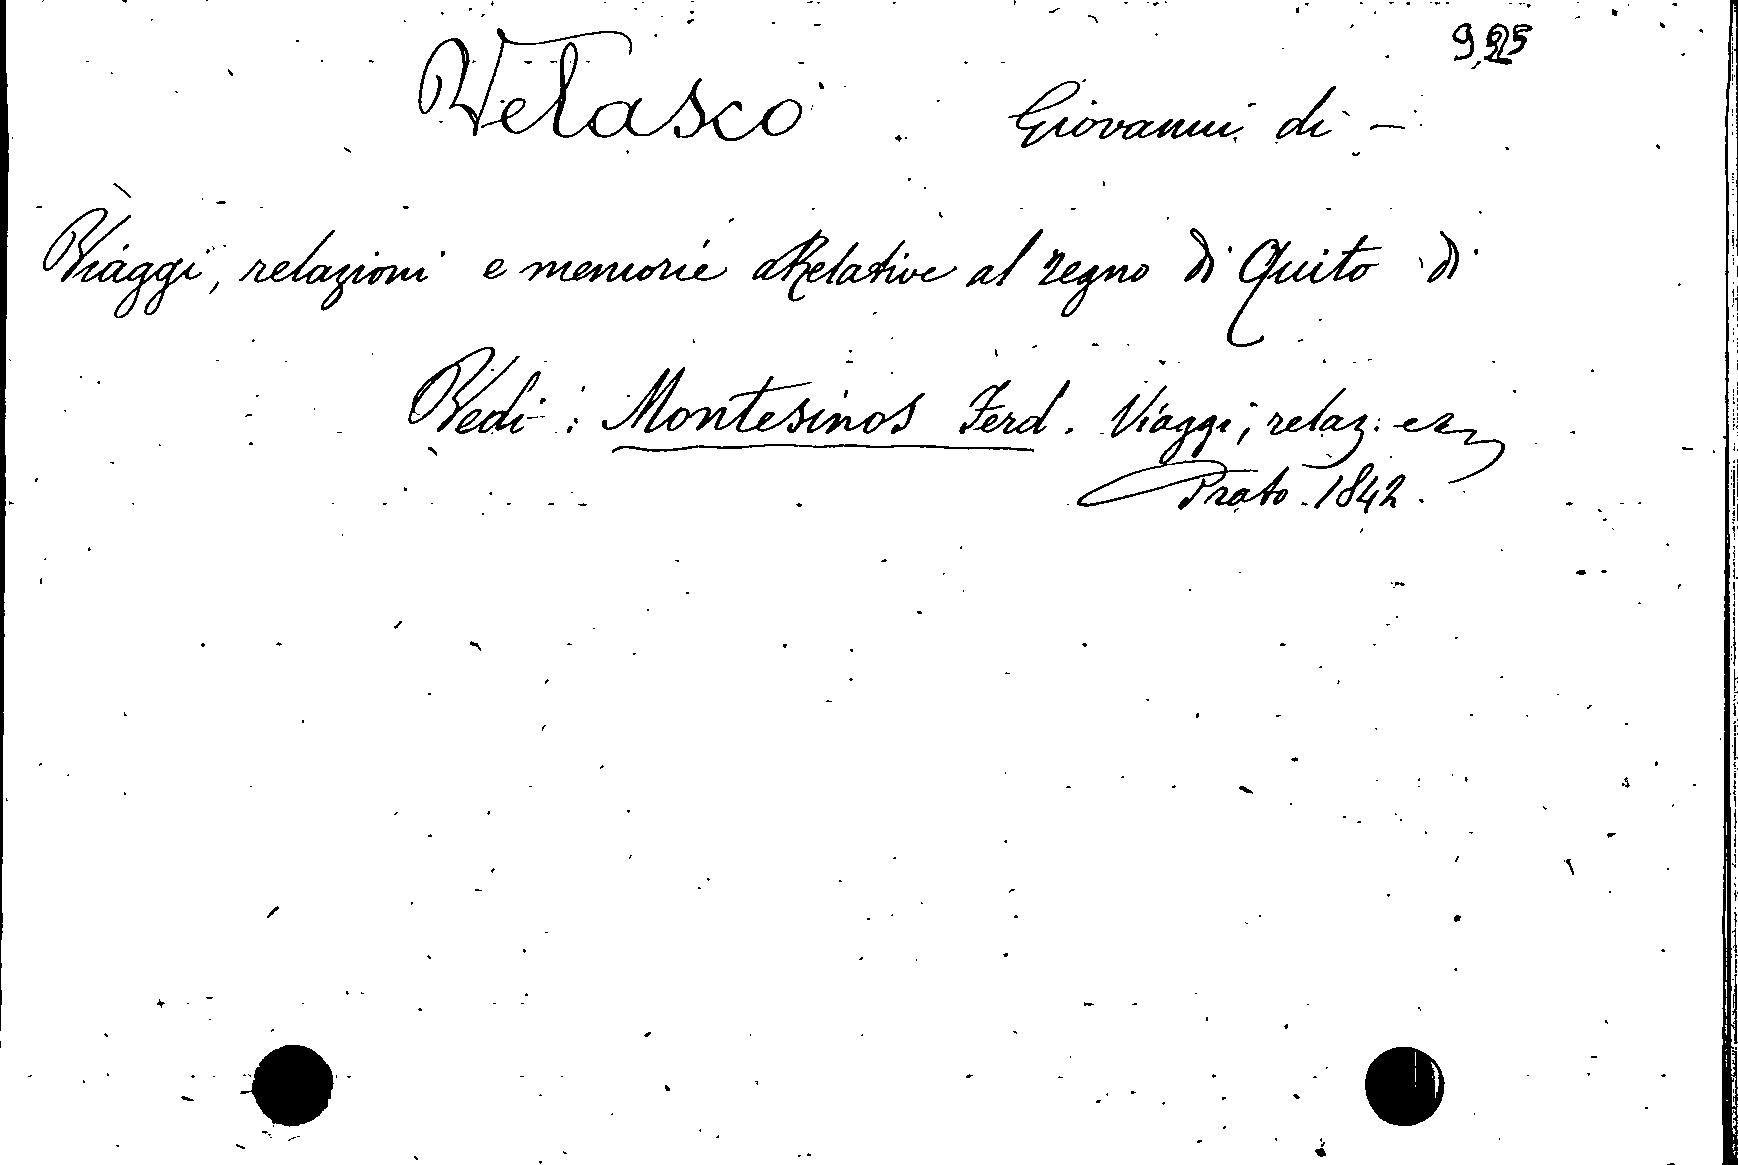 925
Velasco Giovanni di -
Viaggi, relazioni e memorie Relative al regno di Quito di
Vedi: Montesinos Ferd. Viaggi, relaz. ecc
Prato. 1842.